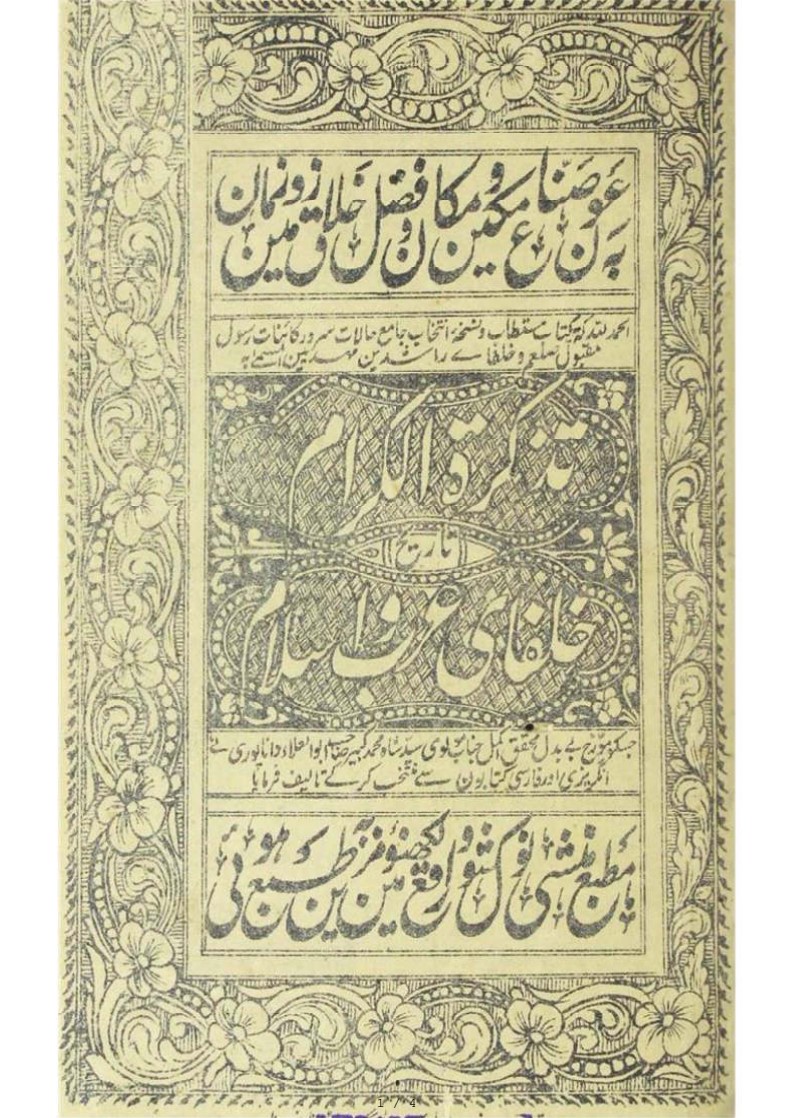 بعون صناع مکین و مکان و فضل خلاق زمین و زمان
الحمد للہ کہ کتاب مستطاب و نسخہ انتخاب جامع حالات سرور کائنات رسول
مقبول صلعم و خلفاے راشدین مہدیین المسمے بہ
تذکرۃ الکرام
تاریخ
خلفای عرب و اسلام
جسکو مورخ بے بدل محقق اکمل جناب مولوی سید شاہ محمد کبیر صاحب ابوالعلا داناپوری نے
انگریزی اور فارسی کتابون سے منتخب کر کے تالیف فرمایا
مطبع منشی نولکشور واقع لکھنؤ مین مزین بہ طبع ہوئی
1 / 4